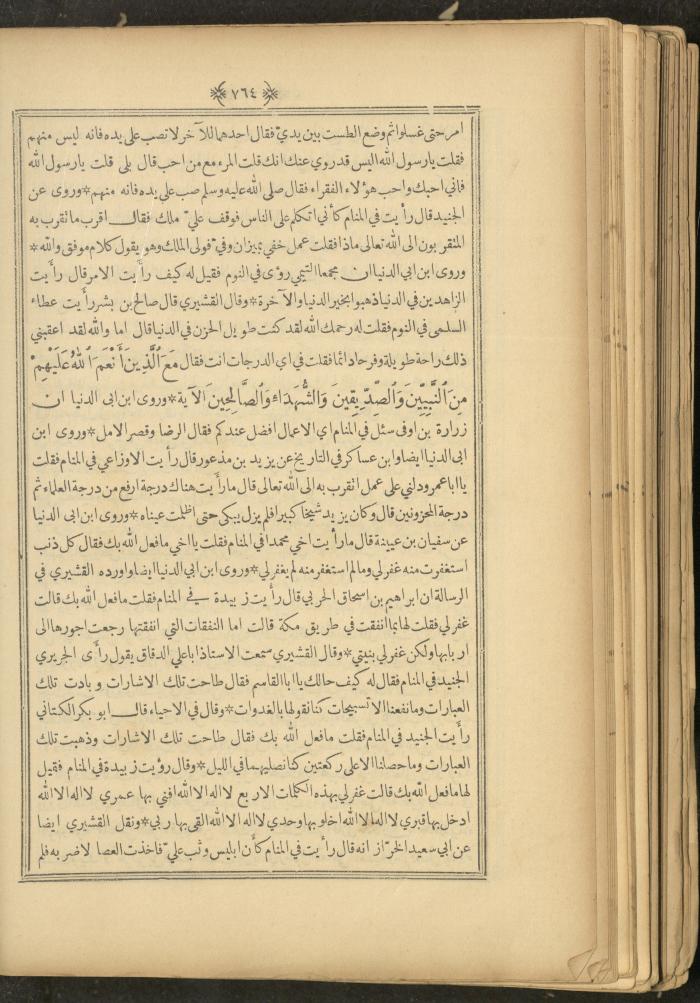 ﴿ ٧٦٤ ﴾
امر حتى غسلوا ثم وضع الطست بين يديّ فقال احدهما للآخر لا تصب على يده فانه ليس منهم
فقلت يا رسول الله اليس قد روي عنك انك قلت المرء مع من احب قال بلى قلت يا رسول الله
فاني احبك واحب هؤلاء الفقراء فقال صلى الله عليه وسلم صب على يده فانه منهم * وروى عن
الجنيد قال رأيت في المنام كأني اتكلم على الناس فوقف عليّ ملك فقال اقرب ما تقرب به
المتقربون الى الله تعالى ماذا فقلت عمل خفي بميزان وفيّ فولى الملك وهو يقول كلام موفق والله *
وروى ابن ابي الدنيا ان مجمعا التيمي رؤى في النوم فقيل له كيف رأيت الامر قال رأيت
الزاهدين في الدنيا ذهبوا بخير الدنيا والآخرة * وقال القشيري قال صالح بن بشر رأيت عطاء
السلمى في النوم فقلت له رحمك الله لقد كنت طويل الحزن في الدنيا قال اما والله لقد اعقبني
ذلك راحة طويلة وفرحا دائما فقلت في اي الدرجات انت فقال مَعَ ٱلَّذِينَ أَنْعَمَ ٱللهُ عَلَيْهِمْ
مِنَ ٱلنَّبِيِّينَ وَٱلصِّدِّيقِينَ وَٱلشُّهَدَاءِ وَٱلصَّالِحِينَ الآية * وروى ابن ابى الدنيا ان
زرارة بن اوفى سئل في المنام اي الاعمال افضل عندكم فقال الرضا وقصر الامل * وروى ابن
ابى الدنيا ايضا وابن عساكر في التاريخ عن يزيد بن مذعور قال رأيت الاوزاعي في المنام فقلت
يا ابا عمرو دلني على عمل اتقرب به الى الله تعالى قال ما رأيت هناك درجة ارفع من درجة العلماء ثم
درجة المحزونين قال وكان يزيد شيخا كبيرا فلم يزل يبكى حتى اظلمت عيناه * وروى ابن ابى الدنيا
عن سفيان بن عيينة قال ما رأيت اخي محمدا في المنام فقلت يا اخي ما فعل الله بك فقال كل ذنب
استغفرت منه غفر لي وما لم استغفر منه لم يغفر لي * وروى ابن ابي الدنيا ايضا واورده القشيري في
الرسالة ان ابراهيم بن اسحاق الحربي قال رأيت زبيدة في المنام فقلت ما فعل الله بك قالت
غفر لي فقلت لها بما انفقت في طريق مكة قالت اما النفقات التي انفقتها رجعت اجورها الى
اربابها ولكن غفر لي بنيتي * وقال القشيري سمعت الاستاذ ابا علي الدقاق يقول رأى الجريري
الجنيد في المنام فقال له كيف حالك يا ابا القاسم فقال طاحت تلك الاشارات وبادت تلك
العبارات وما نفعنا الا تسبيحات كنا نقولها بالغدوات * وقال في الاحياء قال ابو بكر الكتاني
رأيت الجنيد في المنام فقلت ما فعل الله بك فقال طاحت تلك الاشارات وذهبت تلك
العبارات وما حصلنا الا على ركعتين كنا نصليهما في الليل * وقال رؤيت زبيدة في المنام فقيل
لها ما فعل الله بك قالت غفر لي بهذه الكلمات الاربع لا اله الا الله افني بها عمري لا اله الا الله
ادخل بها قبري لا اله الا الله اخلو بها وحدي لا اله الا الله القى بها ربي * ونقل القشيري ايضا
عن ابي سعيد الخرّاز انه قال رأيت في المنام كأن ابليس وثب عليّ فاخذت العصا لاضربه فلم